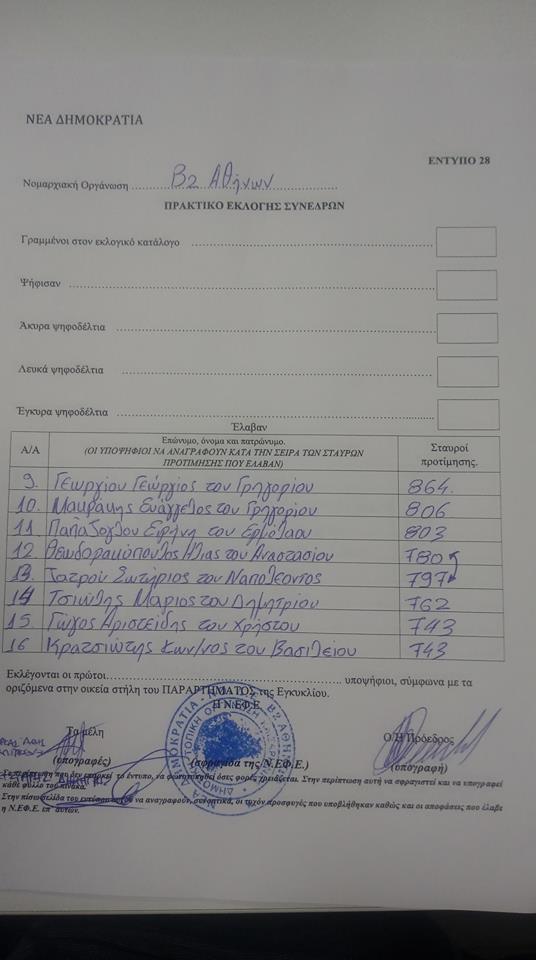 ΝΕΑ ΔΗΜΟΚΡΑΤΙΑ
ΕΝΤΥΠΟ 28
Νομαρχιακή Οργάνωση Β2 Αθηνων
ΠΡΑΚΤΙΚΟ ΕΚΛΟΓΗΣ ΣΥΝΕΔΡΩΝ
Γραμμένοι στον εκλογικό κατάλογο
Ψήφισαν
Άκυρα ψηφοδέλτια
Λευκά ψηφοδέλτια
Έγκυρα ψηφοδέλτια
Έλαβαν
Α/Α Επώνυμο, όνομα και πατρώνυμο. (ΟΙ ΥΠΟΨΗΦΙΟΙ ΝΑ ΑΝΑΓΡΑΦΟΥΝ ΚΑΤΑ ΤΗΝ ΣΕΙΡΑ ΤΩΝ ΣΤΑΥΡΩΝ ΠΡΟΤΙΜΗΣΗΣ ΠΟΥ ΕΛΑΒΑΝ) Σταυροί προτίμησης.
9. Γεωργίου Γεώργιος του Γρηγορίου 864.
10. Μαυράκης Ευάγγελος του Γρηγορίου 806
11 Παπάζογλου Ειρήνη του Ερμόλαου 803
12. Θεωδορακόπουλος Ηλίας του Αναστασίου 780
13. Ιατρού Σωτήριος του Ναπολέοντος 797
14 Τσιώλης Μάριος του Δημητρίου 762
15. Γώγος Αριστείδης του Χρήστου 743
16 Κρατσιώτης Κων/νος του Βασιλείου 743
Εκλέγονται οι πρώτοι υποψήφιοι, σύμφωνα με τα
οριζόμενα στην οικεία στήλη του ΠΑΡΑΡΤΗΜΑΤΟΣ της Εγκυκλίου.
Η Ν.ΕΦ.Ε.
Τα μέλη
Ο/Η Πρόεδρος
(υπογραφές) (σφραγίδα της Ν.ΕΦ.Ε.) (υπογραφή)
Σε περίπτωση που δεν επαρκεί το έντυπο, να φωτοτυπηθεί όσες φορές χρειάζεται. Στην περίπτωση αυτή να σφραγιστεί και να υπογραφεί
κάθε φύλλο του πίνακα.
Στην πίσω σελίδα του εντύπου αυτού να αναγραφούν, συνοπτικά, οι τυχόν προσφυγές που υποβλήθηκαν καθώς και οι αποφάσεις που έλαβε
η Ν.ΕΦ.Ε. επ' αυτών.